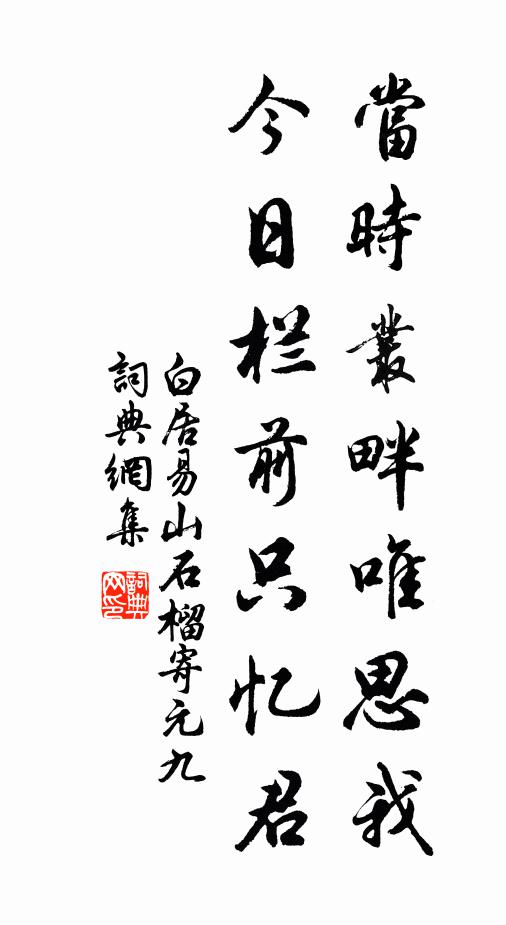 當時叢畔唯思我
今日栏前只忆君
白居易山石榴寄元九
詞典網集
詞典网印